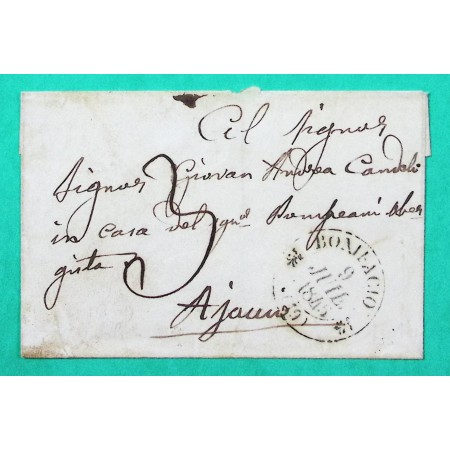 Al Signor
Signor Giovan Andrea Candeli
in casa del qm Pompeani
gista
3
Ajaccio
BONIFACIO
9
JUIL.
(19)